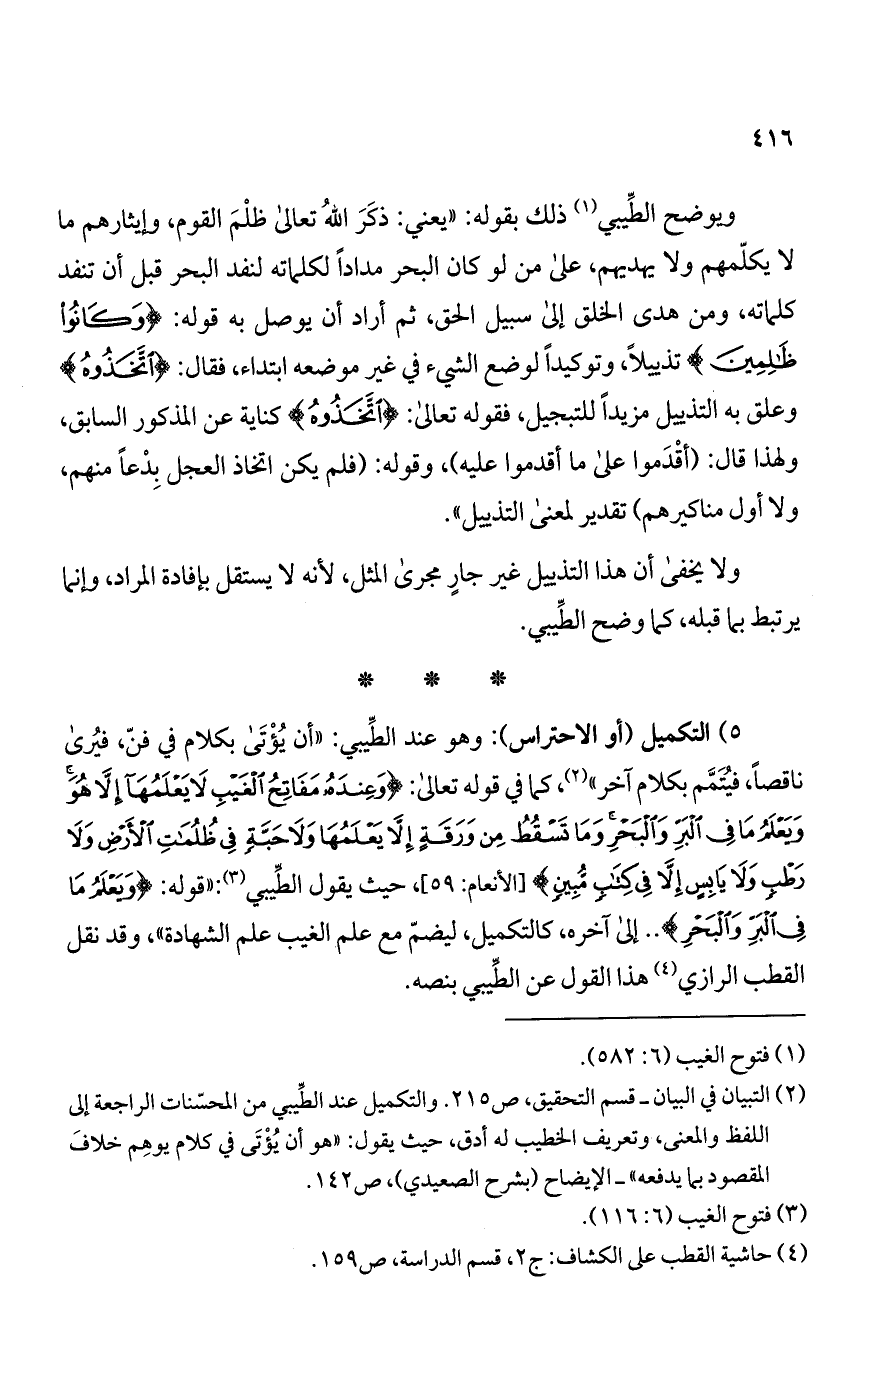 ٤١٦
ويوضح الطِّيبي(١) ذلك بقوله: «يعني: ذكَرَ اللهُ تعالىٰ ظلْمَ القوم، وإيثارهم ما
لا يكلّمهم ولا يهديهم، علىٰ من لو كان البحر مداداً لكلماته لنفد البحر قبل أن تنفد
كلماته، ومن هدى الخلق إلىٰ سبيل الحق، ثم أراد أن يوصل به قوله: ﴿وَكَانُوا۟
ظَٰلِمِينَ﴾ تذييلاً، وتوكيداً لوضع الشيء في غير موضعه ابتداء، فقال: ﴿ٱتَّخَذُوهُ﴾
وعلق به التذييل مزيداً للتبجيل، فقوله تعالىٰ: ﴿ٱتَّخَذُوهُ﴾ كناية عن المذكور السابق،
ولهذا قال: (أقْدَموا علىٰ ما أقدموا عليه)، وقوله: (فلم يكن اتخاذ العجل بِدْعاً منهم،
ولا أول مناكيرهم) تقدير لمعنىٰ التذييل».
ولا يخفىٰ أن هذا التذييل غير جارٍ مجرىٰ المثل، لأنه لا يستقل بإفادة المراد، وإنما
يرتبط بما قبله، كما وضح الطِّيبي.
* * *
٥) التكميل (أو الاحتراس): وهو عند الطِّيبي: «أن يُؤْتَىٰ بكلام في فنّ، فيُرىٰ
ناقصاً، فيُتَمَّم بكلام آخر»(٢)، كما في قوله تعالىٰ: ﴿وَعِندَهُۥ مَفَاتِحُ ٱلْغَيْبِ لَا يَعْلَمُهَآ إِلَّا هُوَۚ
وَيَعْلَمُ مَا فِى ٱلْبَرِّ وَٱلْبَحْرِۚ وَمَا تَسْقُطُ مِن وَرَقَةٍ إِلَّا يَعْلَمُهَا وَلَا حَبَّةٍ فِى ظُلُمَٰتِ ٱلْأَرْضِ وَلَا
رَطْبٍ وَلَا يَابِسٍ إِلَّا فِى كِتَٰبٍ مُّبِينٍ﴾ [الأنعام: ٥٩]، حيث يقول الطِّيبي(٣): «قوله: ﴿وَيَعْلَمُ مَا
فِى ٱلْبَرِّ وَٱلْبَحْرِ﴾.. إلىٰ آخره، كالتكميل، ليضمّ مع علم الغيب علم الشهادة»، وقد نقل
القطب الرازي(٤) هذا القول عن الطِّيبي بنصه.
(١) فتوح الغيب (٦: ٥٨٢).
(٢) التبيان في البيان ـ قسم التحقيق، ص٢١٥. والتكميل عند الطِّيبي من المحسّنات الراجعة إلى
اللفظ والمعنى، وتعريف الخطيب له أدق، حيث يقول: «هو أن يُؤْتَى في كلام يوهِم خلافَ
المقصود بما يدفعه» ـ الإيضاح (بشرح الصعيدي)، ص١٤٢.
(٣) فتوح الغيب (٦: ١١٦).
(٤) حاشية القطب على الكشاف: ج٢، قسم الدراسة، ص١٥٩.